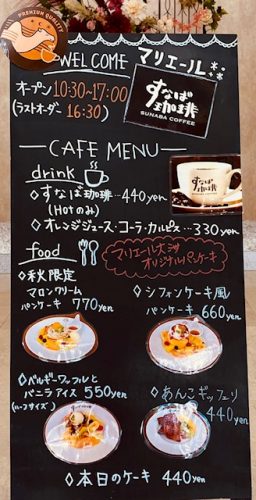 PREMIUM QUALITY
WELCOME マリエール
オープン 10:30~17:00
(ラストオーダー 16:30)
すなば珈琲
SUNABA COFFEE
CAFE MENU
drink
◇すなば珈琲…440yen
(Hotのみ)
◇オレンジジュース・コーラ・カルピス…330yen
すなば珈琲
food
マリエール大山
オリジナルパンケーキ
◇秋限定
マロンクリーム
パンケーキ 770yen
◇シフォンケーキ風
パンケーキ 660yen
◇ベルギーワッフルと
バニラアイス 550yen
(ハーフサイズ)
◇あんこギッフェリ
440yen
◇本日のケーキ 440yen